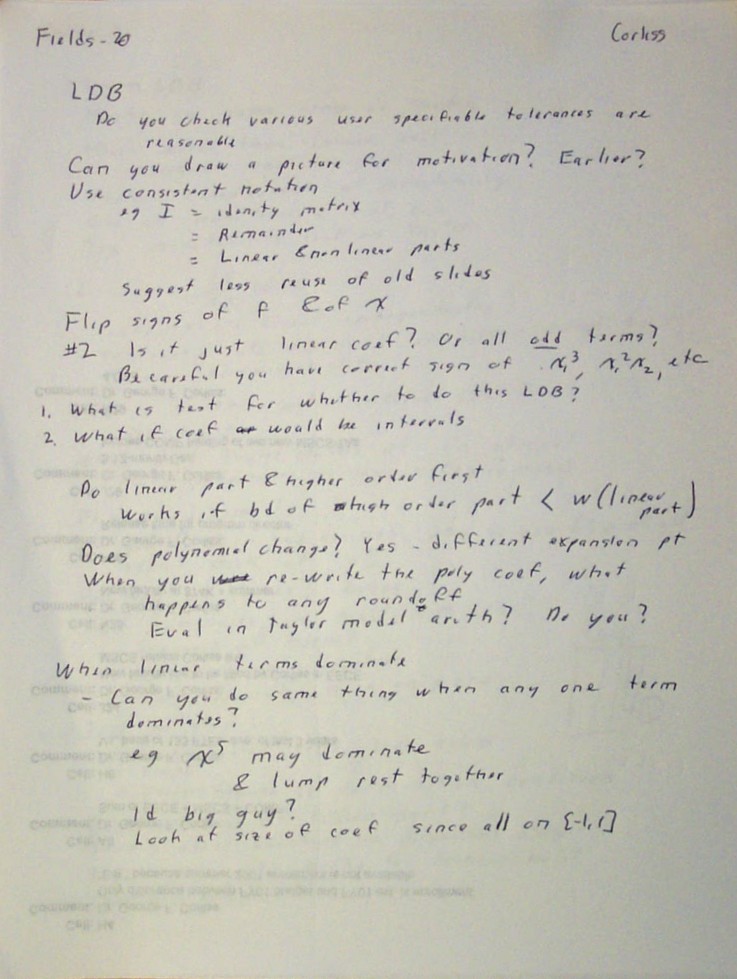 Fields-20
Corliss
LDB
Do you check various user specifiable tolerances are
reasonable
Can you draw a picture for motivation? Earlier?
Use consistent notation
eg I = idenity matrix
= Remainder
= Linear & nonlinear parts
Suggest less reuse of old slides
Flip signs of f & of x
#2 Is it just linear coef? Or all odd terms?
Be careful you have correct sign of x₁³, x₁²x₂, etc
1. What is test for whether to do this LDB?
2. What if coef would be intervals
Do linear part & higher order first
Works if bd of high order part < w(linear
part)
Does polynomial change? Yes - different expansion pt
When you re-write the poly coef, what
happens to any roundoff
Eval in Taylor model arith? Do you?
When linear terms dominate
- Can you do same thing when any one term
dominates?
eg x⁵ may dominate
& lump rest together
Id big guy?
Look at size of coef since all on [-1,1]
Comment: Dr. George F. Corliss